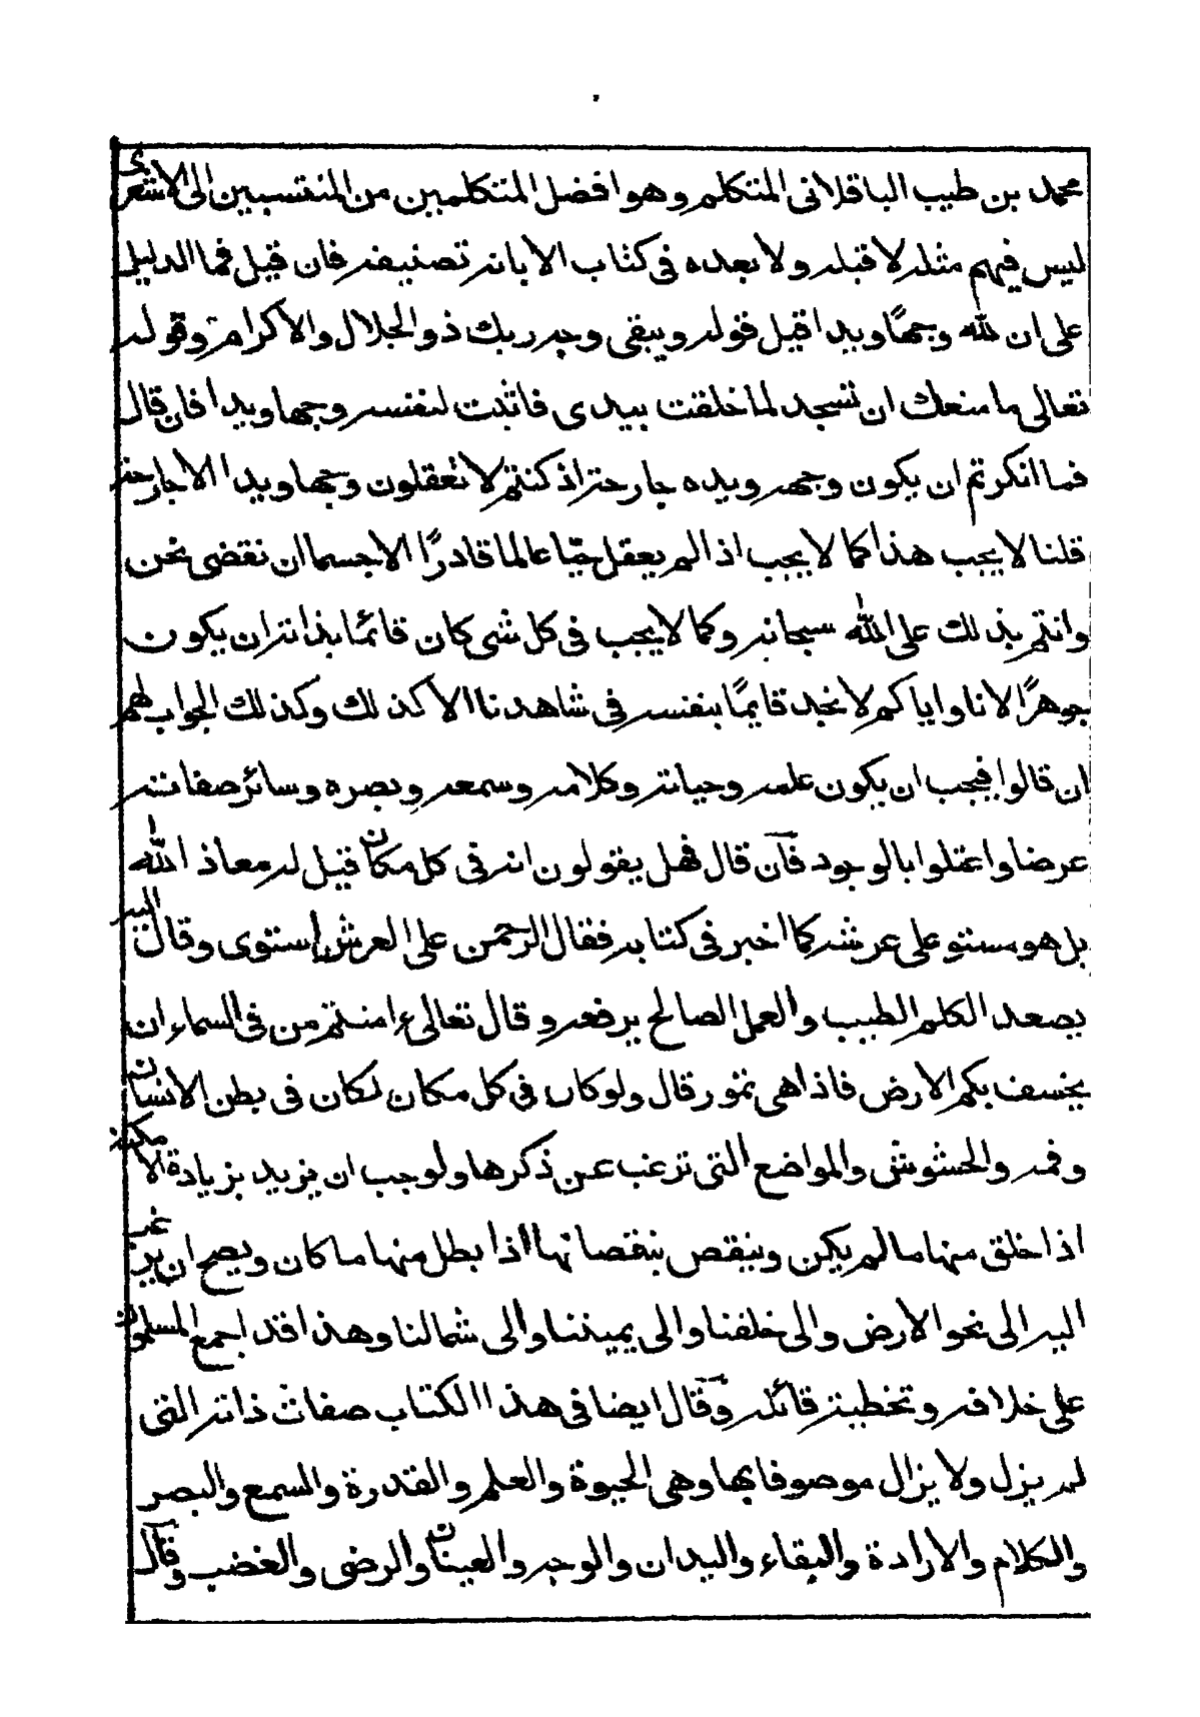 محمد بن طيب الباقلانى المتكلم وهو افضل المتكلمين من المنتسبين الى الاشعرى
ليس فيهم مثله لا قبله ولا بعده فى كتاب الابانه تصنيفه فان قيل فما الدليل
على ان لله وجهًا ويدا قيل قوله ويبقى وجه ربك ذو الجلال والاكرام وقوله
تعالى ما منعك ان تسجد لما خلقت بيدى فاثبت لنفسه وجها ويدا فان قال
فما انكرتم ان يكون وجهه ويده جارحة اذ كنتم لا تعقلون وجها ويدا الا جارحة
قلنا لا يجب هذا كما لا يجب اذا لم يعقل حيّا عالما قادرًا الا جسما ان نقضى نحن
وانتم بذلك على الله سبحانه وكما لا يجب فى كل شى كان قائما بذاته ان يكون
جوهرًا لانا واياكم لا نجد قايمًا بنفسه فى شاهدنا الا كذلك وكذلك الجواب لهم
ان قالوا فيجب ان يكون علمه وحياته وكلامه وسمعه وبصره وسائر صفاته
عرضا واعتلوا بالوجود فان قال فهل يقولون انه فى كل مكان قيل له معاذ الله
بل هو مستو على عرشه كما اخبر فى كتابه فقال الرحمن على العرش استوى وقال اليه
يصعد الكلم الطيب والعمل الصالح يرفعه وقال تعالى ءامنتم من فى السماء ان
يخسف بكم الارض فاذا هى تمور قال ولو كان فى كل مكان لكان فى بطن الانسان
وفمه والحشوش والمواضع التى ترغب عن ذكرها ولوجب ان يزيد بزيادة الامكنة
اذا خلق منها ما لم يكن وينقص بنقصانها اذا بطل منها ما كان ويصح ان يرغب
اليه الى نحو الارض والى خلفنا والى يميننا والى شمالنا وهذا قد اجمع المسلمون
على خلافه وتخطية قائله وقال ايضا فى هذا الكتاب صفات ذاته التى
لم يزل ولا يزال موصوفا بها وهى الحيوة والعلم والقدرة والسمع والبصر
والكلام والارادة والبقاء واليدان والوجه والعينان والرضى والغضب وقال